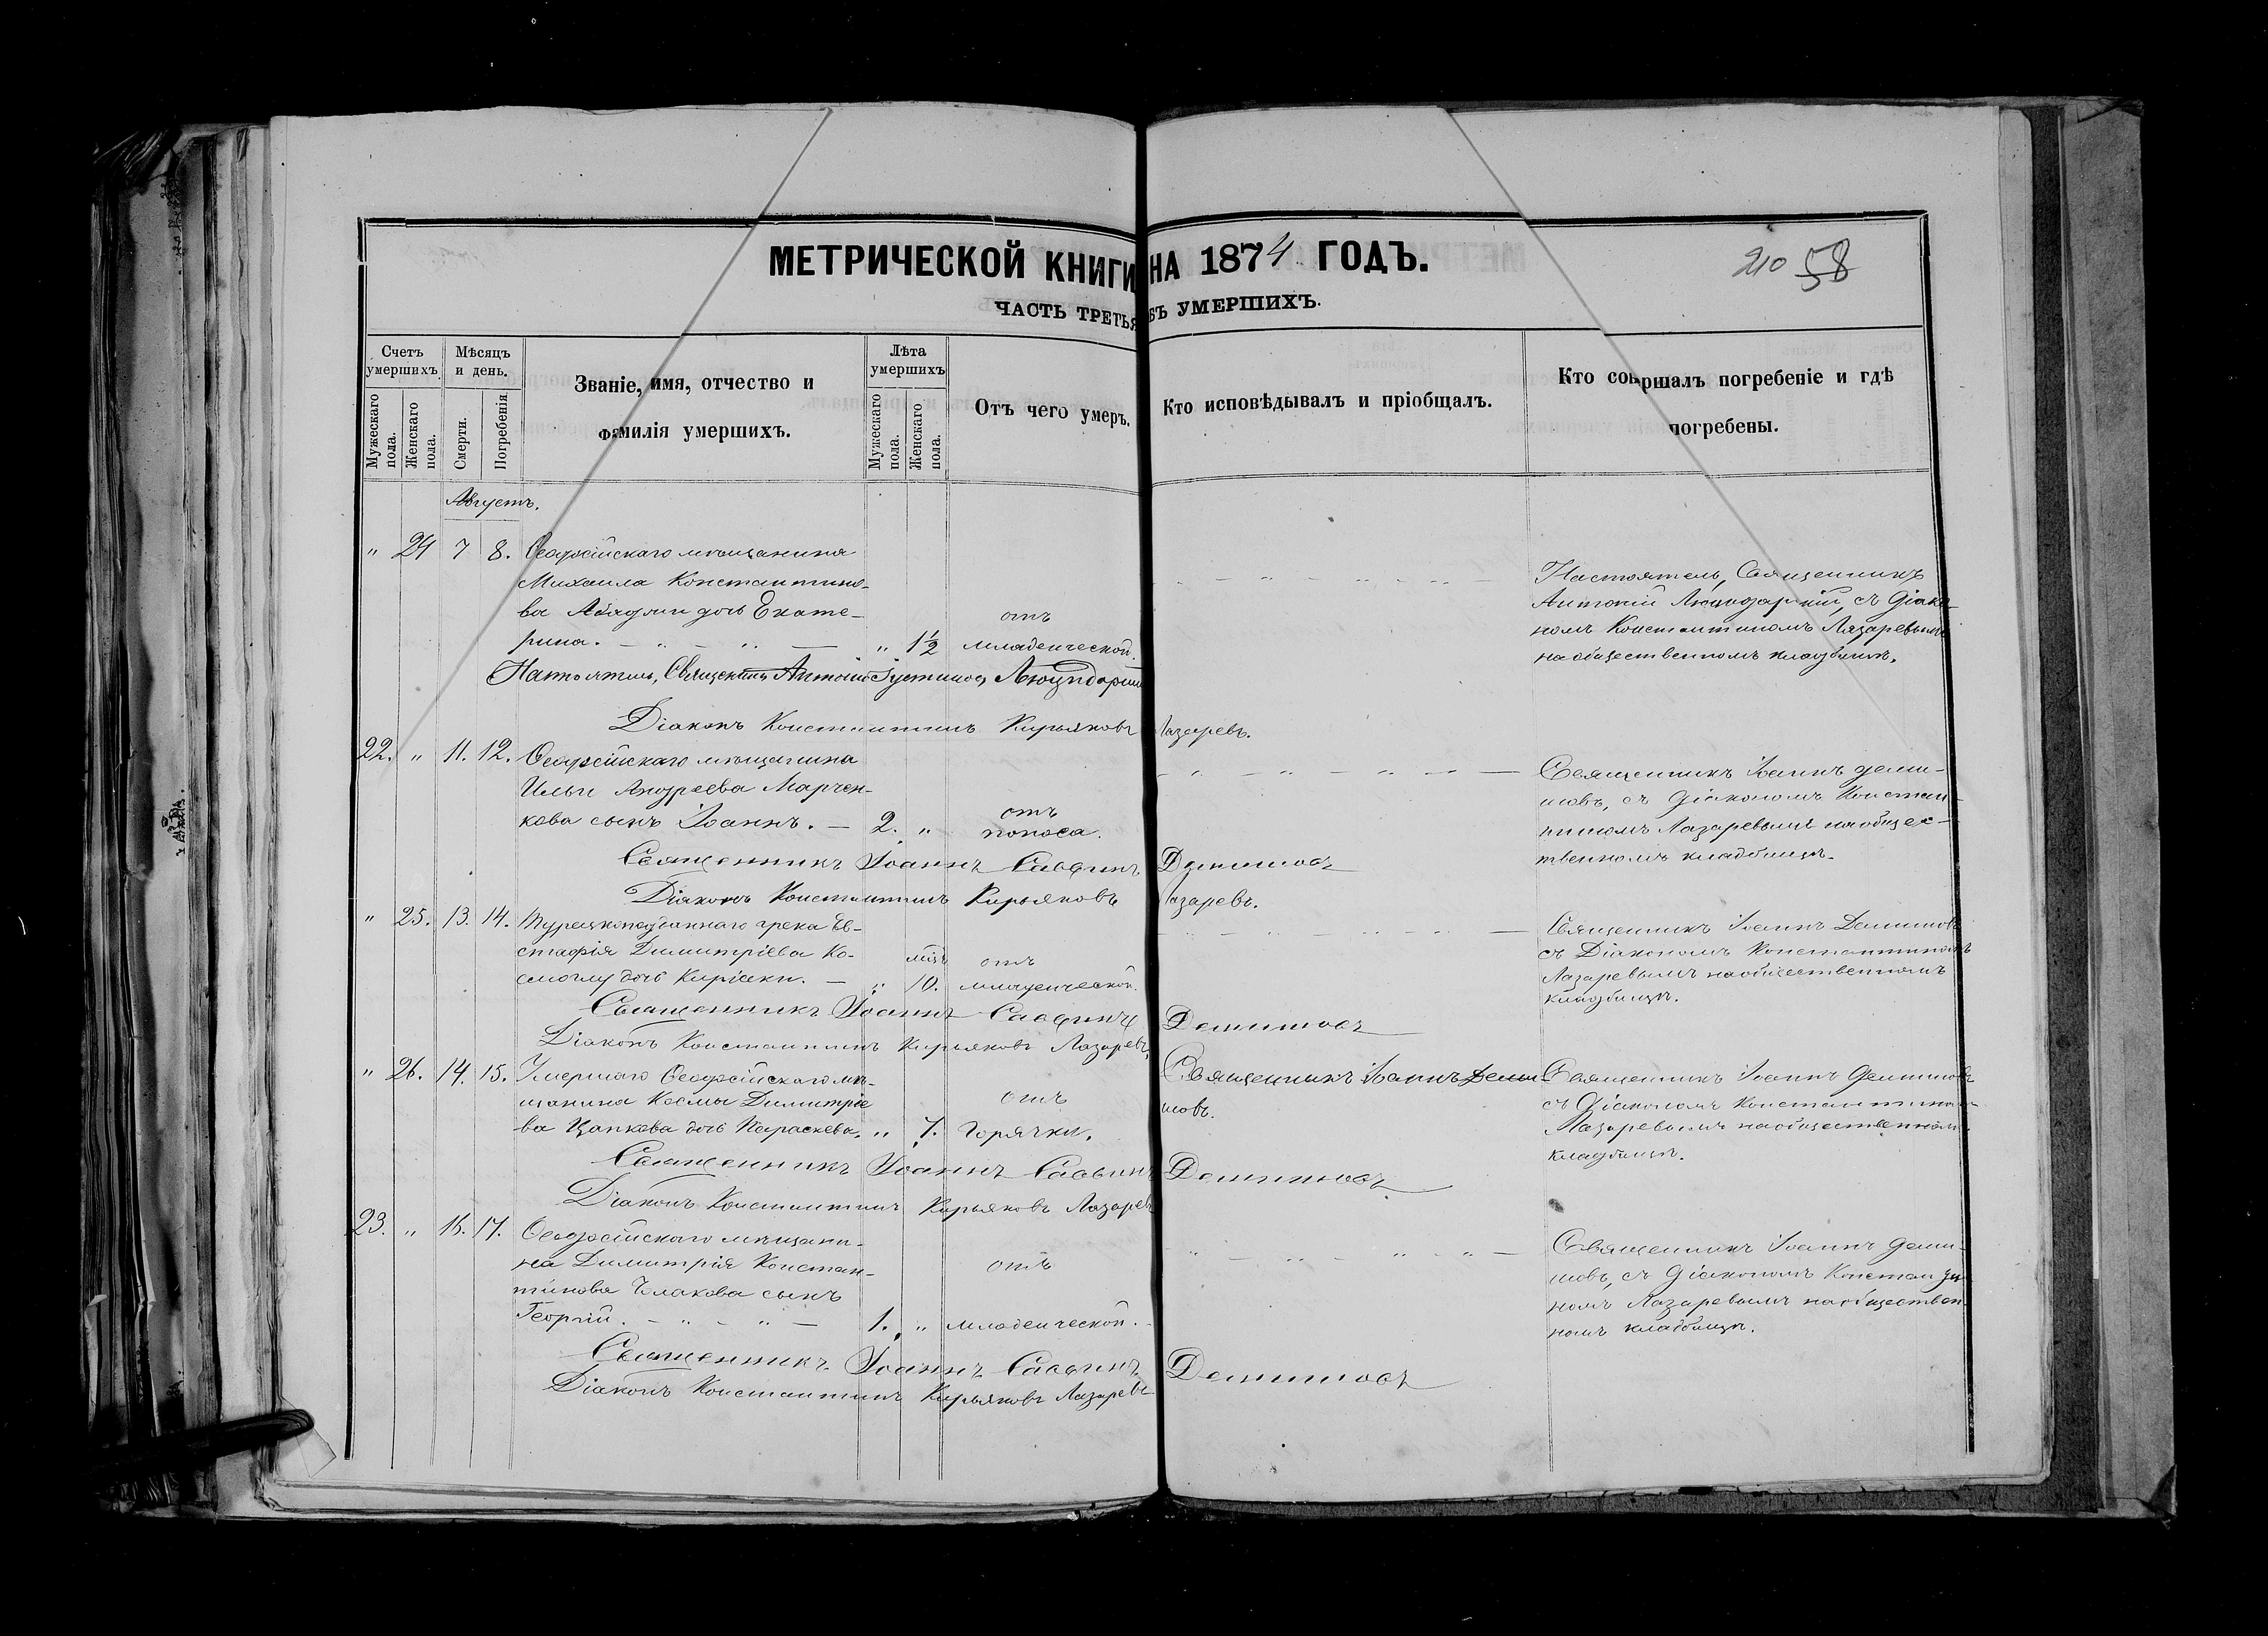 МЕТРИЧЕСКОЙ КНИГИ НА 1874 ГОДЪ.
210 58
ЧАСТЬ ТРЕТЬЯ БЪ УМЕРШИХЪ.
Счетъ умершихъ.
Мужескаго пола.
Женскаго пола.
Мѣсяцъ и день.
Смерти.
Погребенія.
Званіе, имя, отчество и
фамилія умершихъ.
Лѣта умершихъ
Мужескаго пола.
Женскаго пола.
Отъ чего умеръ.
Кто исповѣдывалъ и пріобщалъ.
Кто совершалъ погребеніе и гдѣ
погребены.
Августъ.
" 24 7 8. Ѳеодосійскаго мѣщанина
Михаила Константино-
ва дочь Екате-
рина. " 1½
отъ
младенческой.
Настоятель, Священникъ
Антоній с діако-
номъ Константиномъ Лазаревымъ
на общественномъ кладбищѣ.
Настоятель, Священникъ Антоній
Діаконъ Константинъ Кирьяковъ Лазаревъ.
22. " 11. 12. Ѳеодосійскаго мѣщанина
Ильи Андреева Марчен-
кова сынъ Іоаннъ. — 2. "
отъ
поноса.
Священникъ Іоаннъ Деми-
мовъ, съ діакономъ Констан-
тиномъ Лазаревымъ на общес-
твенномъ кладбищѣ.
Священникъ Іоаннъ Саввинъ Демимовъ
Діаконъ Константинъ Кирьяковъ Лазаревъ.
" 25. 13. 14. Турецкоподданнаго грека Ев-
стафія Димитріева Ко-
дочь Киріаки. — " мѣс. 10.
отъ
младенческой.
Священникъ Іоаннъ Демимовъ
съ Діакономъ Константиномъ
Лазаревымъ на общественномъ
кладбищѣ.
Священникъ Іоаннъ Саввинъ Демимовъ
Діаконъ Константинъ Кирьяковъ Лазаревъ
" 26. 14. 15. Умершаго Ѳеодосійскаго мѣ-
щанина Космы Димитріе
ва Цапкова дочь Параскева. " 7.
отъ
Горячки.
Священникъ Іоаннъ Деми-
мовъ.
Священникъ Іоаннъ Демимовъ
съ Діакономъ Константиномъ
Лазаревымъ на общественномъ
кладбищѣ.
Священникъ Іоаннъ Саввинъ Демимовъ
Діаконъ Константинъ Кирьяковъ Лазаревъ
23. " 16. 17. Ѳеодосійскаго мѣщани-
на Димитрія Констан-
тинова сынъ
Георгій. 1. "
отъ
младенческой.
Священникъ Іоаннъ Деми-
мовъ, съ Діакономъ Константи-
номъ Лазаревымъ на обществен-
номъ кладбищѣ.
Священникъ Іоаннъ Саввинъ Демимовъ
Діаконъ Константинъ Кирьяковъ Лазаревъ